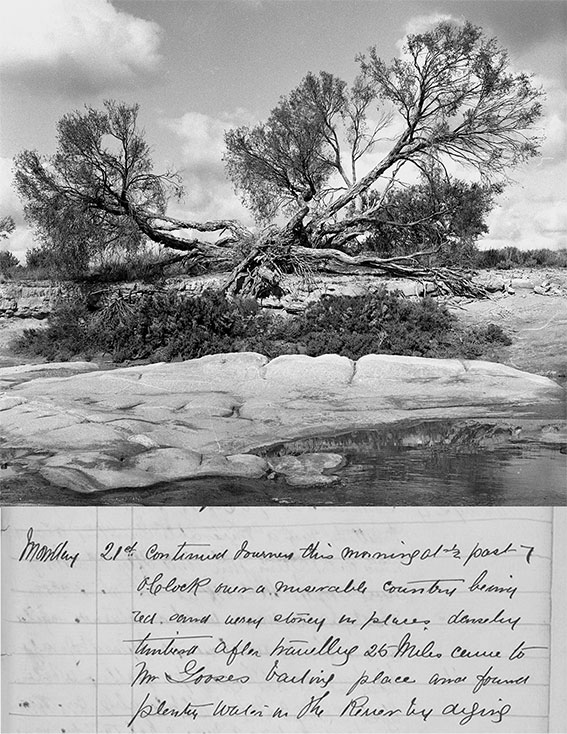 Monday 21st Continued Journey this morning at ½ past 7
OClock over a miserable country being
red sand verey stoney in places densley
timbred After travelling 25 Miles came to
Mr Gosses baiting place and found
plenty water in the River by diging